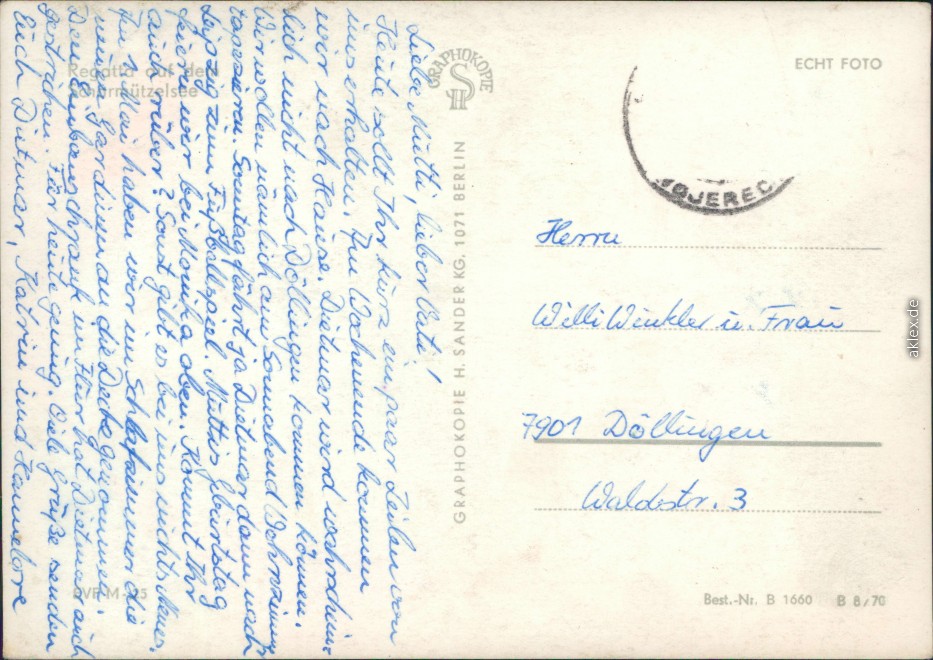 Liebe Mutti, lieber Vati!
Heute sollt Ihr kurz ein paar Zeilen von
uns erhalten. Am Wochenende kommen
wir nach Hause. Dietmar wird wahrschein-
lich nicht nach Döllingen kommen können.
Wir wollen nämlich am Sonnabend
tapezieren. Sonntag fährt ja Dietmar dann nach
Leipzig zum Fußballspiel. Muttis Gburtstag
feiern wir bei Monika oben. Kommt Ihr
auch rüber? Sonst gibt es bei uns nichts Neues.
Am 1. Mai haben wir im Schlafzimmer die
neuen Gardinen an die Decke genommen.
Den Einbauschrank im Flur hat Dietmar auch
gestrichen. Für heute genug. Viele Grüße senden
Euch Dietmar, Katrin und Hannelore
Regatta auf dem
Scharmützelsee
PVF M - 25
GRAPHOKOPIE
SH
GRAPHOKOPIE H. SANDER KG. 1071 BERLIN
ECHT FOTO
WOJEREC
Herrn
Willi Winkler u. Frau
7901 Döllingen
Waldstr. 3
Best.-Nr. B 1660 B 8/70
aklex.de